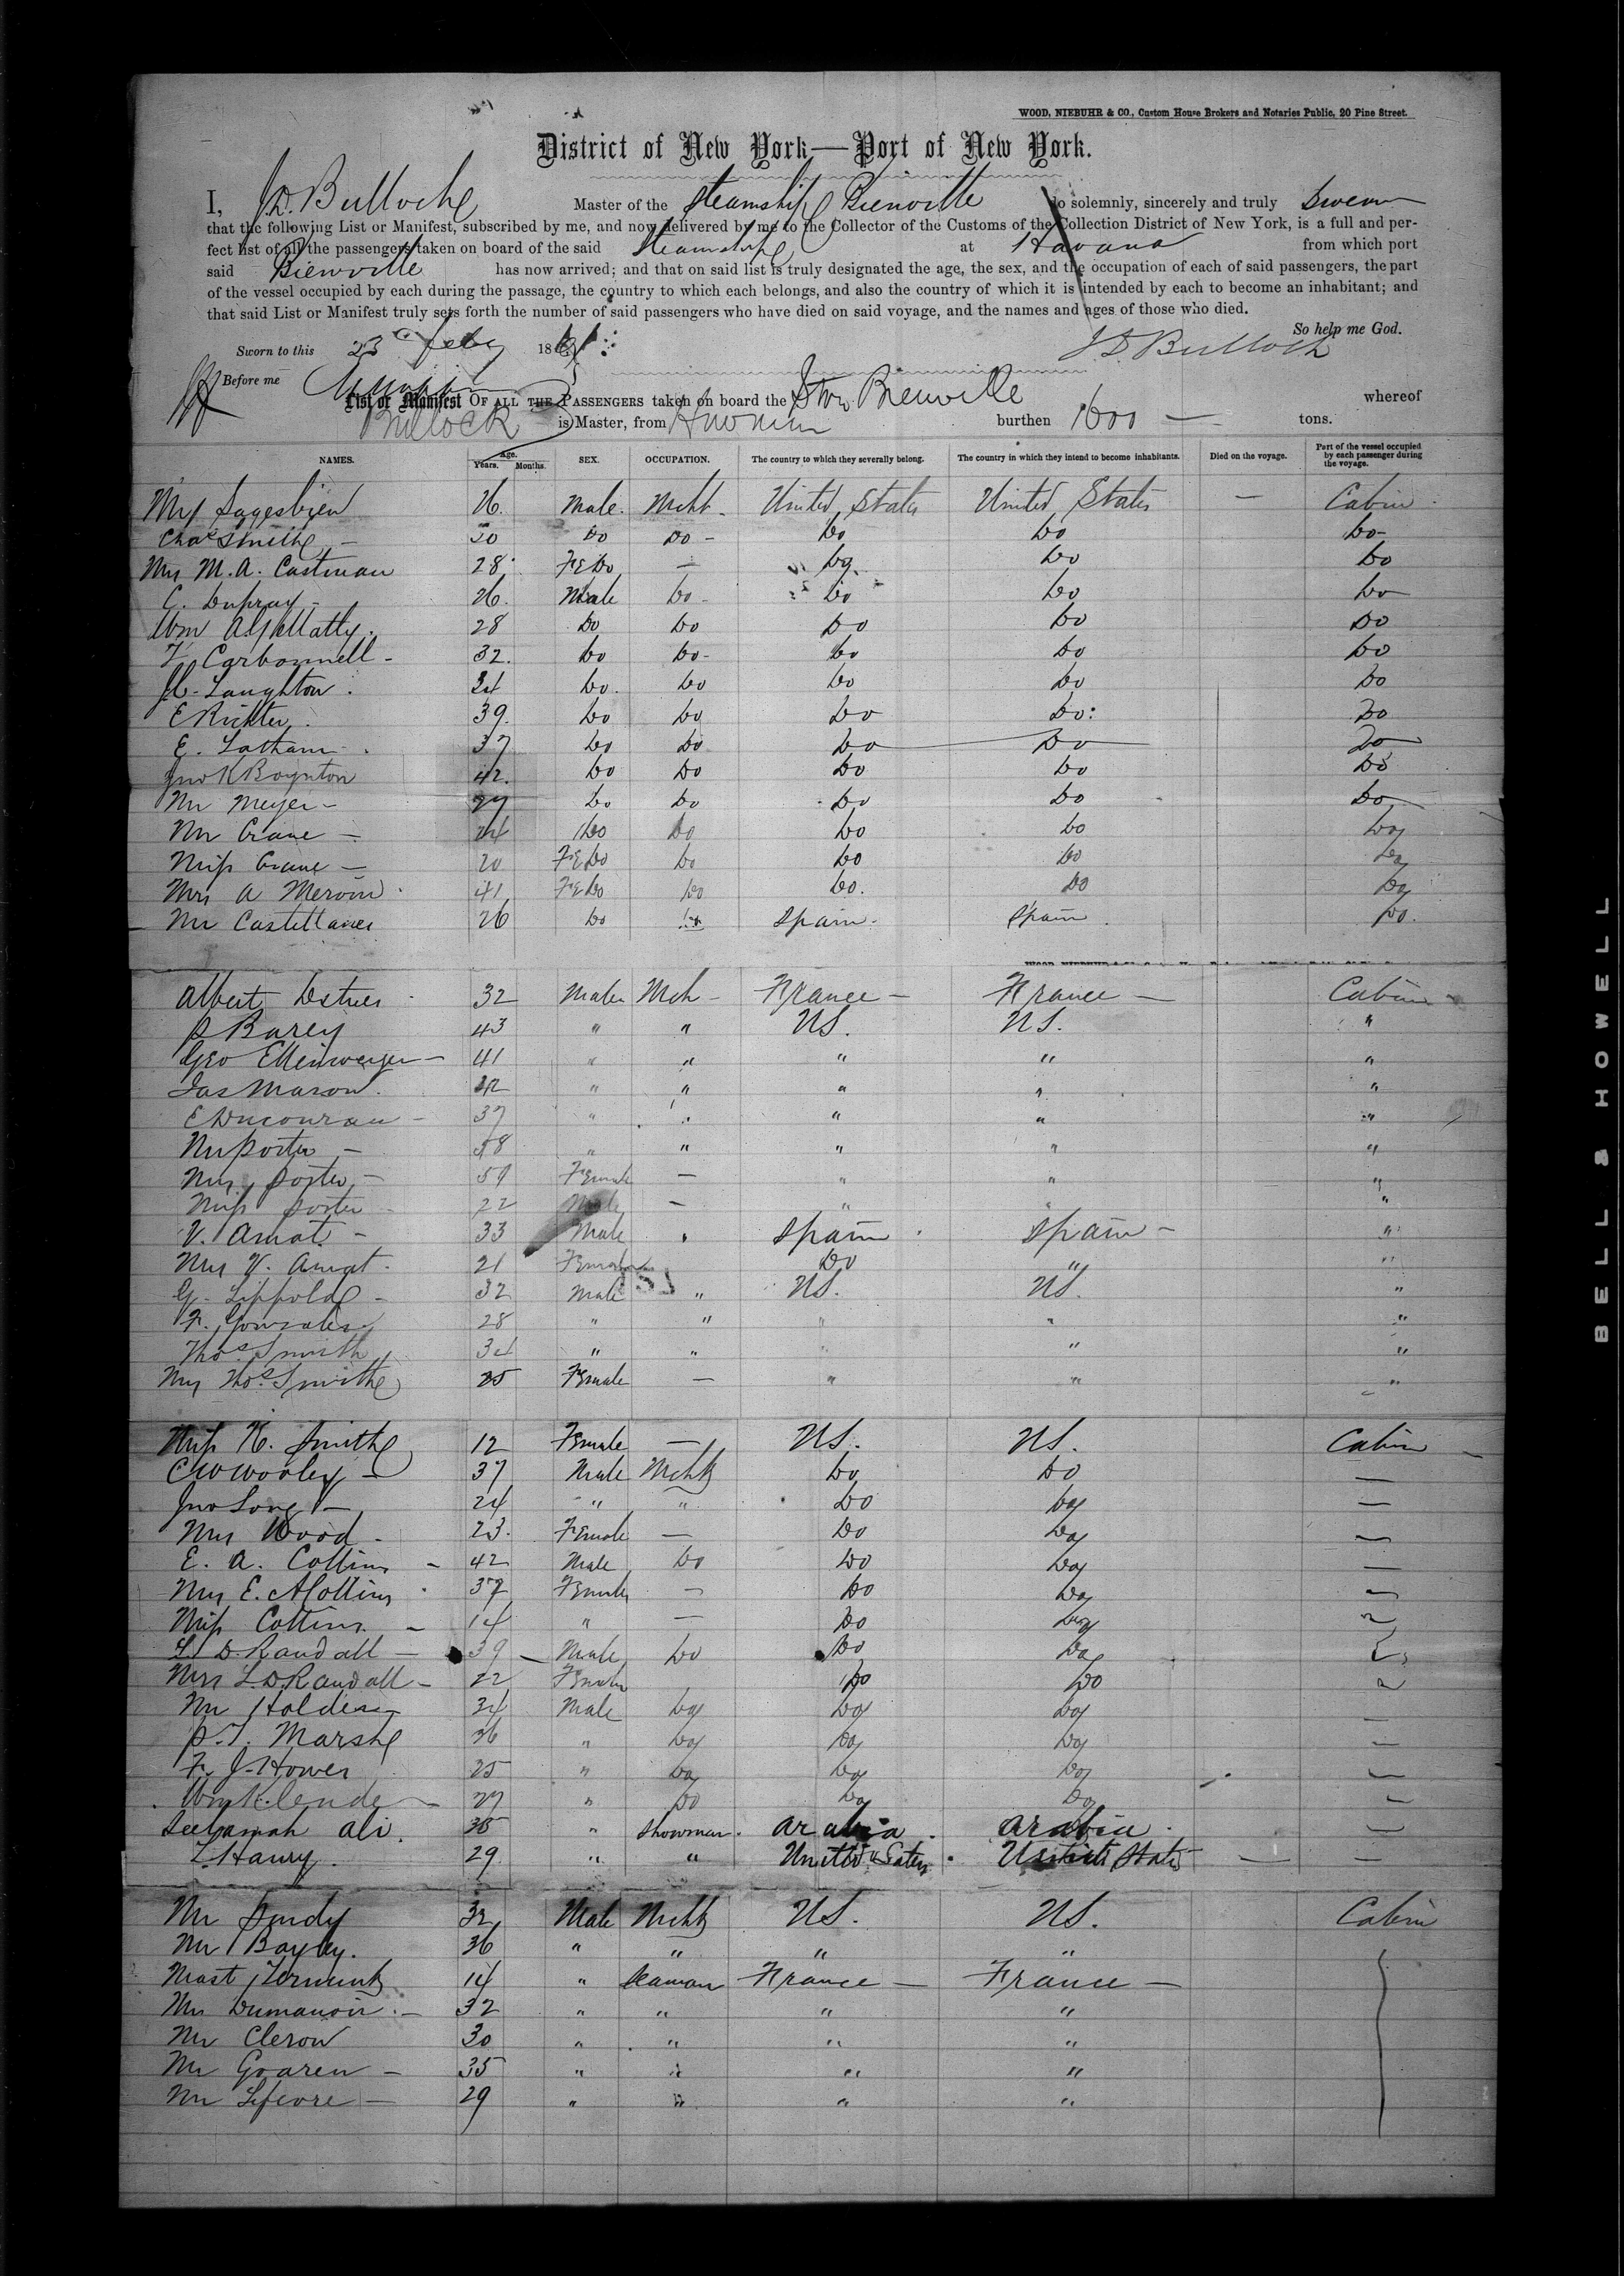 WOOD, NIEBUHR & CO., Custom House Brokers and Notaries Public, 20 Pine Street.
District of New York—Port of New York.
I, J.D. Bulloch Master of the Steamship Bienville do solemnly, sincerely and truly Swear
that the following List or Manifest, subscribed by me, and now delivered by me to the Collector of the Customs of the Collection District of New York, is a full and per-
fect list of all the passengers taken on board of the said Steamship at Havana from which port
said Bienville has now arrived; and that on said list is truly designated the age, the sex, and the occupation of each of said passengers, the part
of the vessel occupied by each during the passage, the country to which each belongs, and also the country of which it is intended by each to become an inhabitant; and
that said List or Manifest truly sets forth the number of said passengers who have died on said voyage, and the names and ages of those who died.
So help me God.
Sworn to this 23 Feby 1861 J D Bulloch
Before me
List or Manifest OF ALL THE PASSENGERS taken on board the Str Bienville whereof
Bullock is Master, from Havana burthen 1600 — tons.
NAMES. Age. Years. Months. SEX. OCCUPATION. The country to which they severally belong. The country in which they intend to become inhabitants. Died on the voyage. Part of the vessel occupied by each passenger during the voyage.
26. Male. Mcht. United States United States — Cabin
Chas Smith — 30 Do Do - Do Do Do-
Mrs M. A. Eastman 28 FEDo — Do Do Do
C. Dupray - 26. Male Do - Do Do Do
Wm 28 Do Do Do Do Do
F Carbonnell - 32. Do Do- Do Do Do
Laughton. 34 Do. Do Do Do Do
E Richter. 39. Do Do Do Do: Do
E. Latham 37 Do Do Do Do Do
Jno Boynton 42. Do Do Do Do Do
Mr Meyer - 27 Do Do Do Do Do
Mr Crane - 24 Do Do Do Do Do
Miss Crane — 20 FEDo Do Do Do Do
Mrs A Mervin 41 FEDo Do Do. Do Do
Mr Castellanes 26 Do Spain. Spain. Do.
Albert Destres 32 Male Mch - France - France — Cabin
P Barey 43 " " US. US. "
Geo Ellinweger - 41 " " " " "
Jas Mason. 42 " " " " "
E Ducourau - 37 " " " " "
Mr Porter - 58 " " " " "
Mrs Porter - 59 Female — " " "
Miss Porter - 22 — " " "
V. Amat - 33 Male " Spain Spain - "
Mrs V. Amat - 21 Female Do " "
G. Lippold - 32 Male " US. US. "
F. Gonzales 28 " " " " "
Thos Smith 34 " " " " "
Mrs Thos Smith 25 Female — " " "
Miss K. Smith 12 Female — US. US. Cabin
C W Worley - 37 Male Mcht Do Do —
Jno Long - 24 " " Do Do —
Mrs Wood - 23. Female — Do Do —
E. A. Collins - 42 Male Do Do Do —
Mrs E. A Collins 37 Female — Do Do —
Miss Collins - 14 " — Do Do
L. D. Randall — 39 — Male Do Do Do
Mrs L. D Randall - 22 Female Do Do
Mr Holden 34 Male Do Do Do —
P. T. Marsh 36 " Do Do Do —
F. J. Hower 25 " Do Do Do —
Wm 27 " Do Do Do —
Seeyamah Ali. 35 " Showman. Arabia. Arabia. —
L. Haury. 29 " " United States. United States — —
Mr Purdy 32 Male Mcht US. US. Cabin
Mr Bayley. 36 " " " "
Mast 14 " Seaman France — France —
Mr Dumanoir. - 32 " " " "
Mr Cleron 30 " " " "
Mr Goaren - 35 " " " "
Mr Lefevre — 29 " " " "
BELL & HOWELL